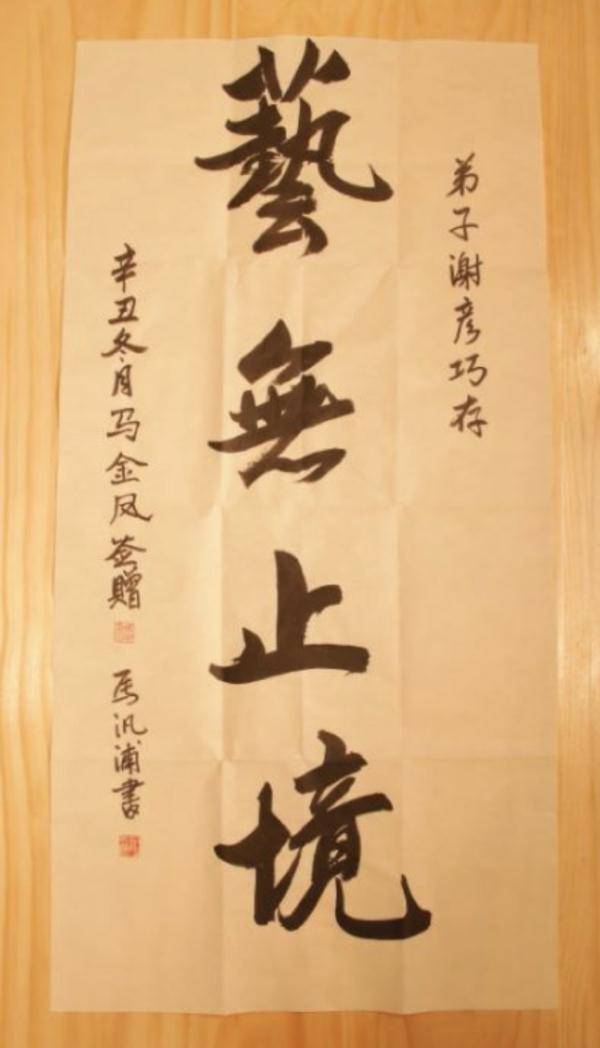 弟子谢彦巧存
藝無止境
辛丑冬月马金凤签贈
馬汎浦書